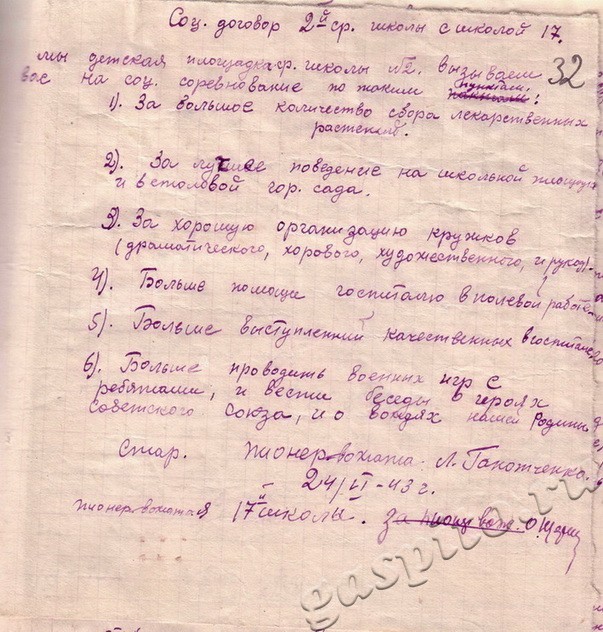 Соц. договор 2й ср. школы с школой 17.
32
мы детская площадка ср. школы №2. вызываем
вас на соц. соревнование по таким пунктам:
1). За большое количество сбора лекарственных
растений.
2). За лучшее поведение на школьной площадке
и в столовой гор. сада.
3). За хорошую организацию кружков
(драматического, хорового, художественного, и рукод).
4). Больше помощи госпиталю в полевой работе
5). Больше выступлений качественных в госпиталь
6). Больше проводить военных игр с
ребятами, и вести беседы о героях
советского союза, и о вождях нашей Родины
Стар. пионер-вожатая: Л.
24/VI-43 г.
пионер-вожатая 17й школы. За пионер вож. О.
gaspito.ru